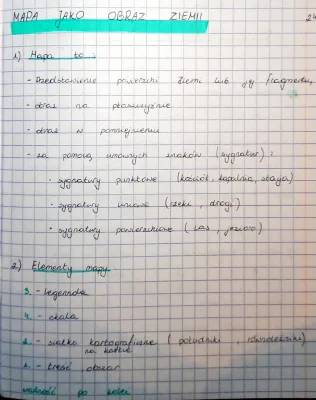 MAPA JAKO OBRAZ ZIEMII 24
1) Mapa to:
- Przedstawienie powierzchi Ziemi lub jej fragmentu,
- obraz na płaszczyźnie
- obraz w pomniejszeniu
- za pomocą umownych znaków (sygnatur):
• sygnatury punktowe (kościół, kopalnia, stacja)
• sygnatury liniowe (rzeki, drogi)
• sygnatury powierzchniowe (las, jezioro)
2) Elementy mapy
3. - legenda
4. - skala
2. - siatka kartograficzna (południki, równoleżniki)
na kartce
1. - treść, obszar
ważność po kolei